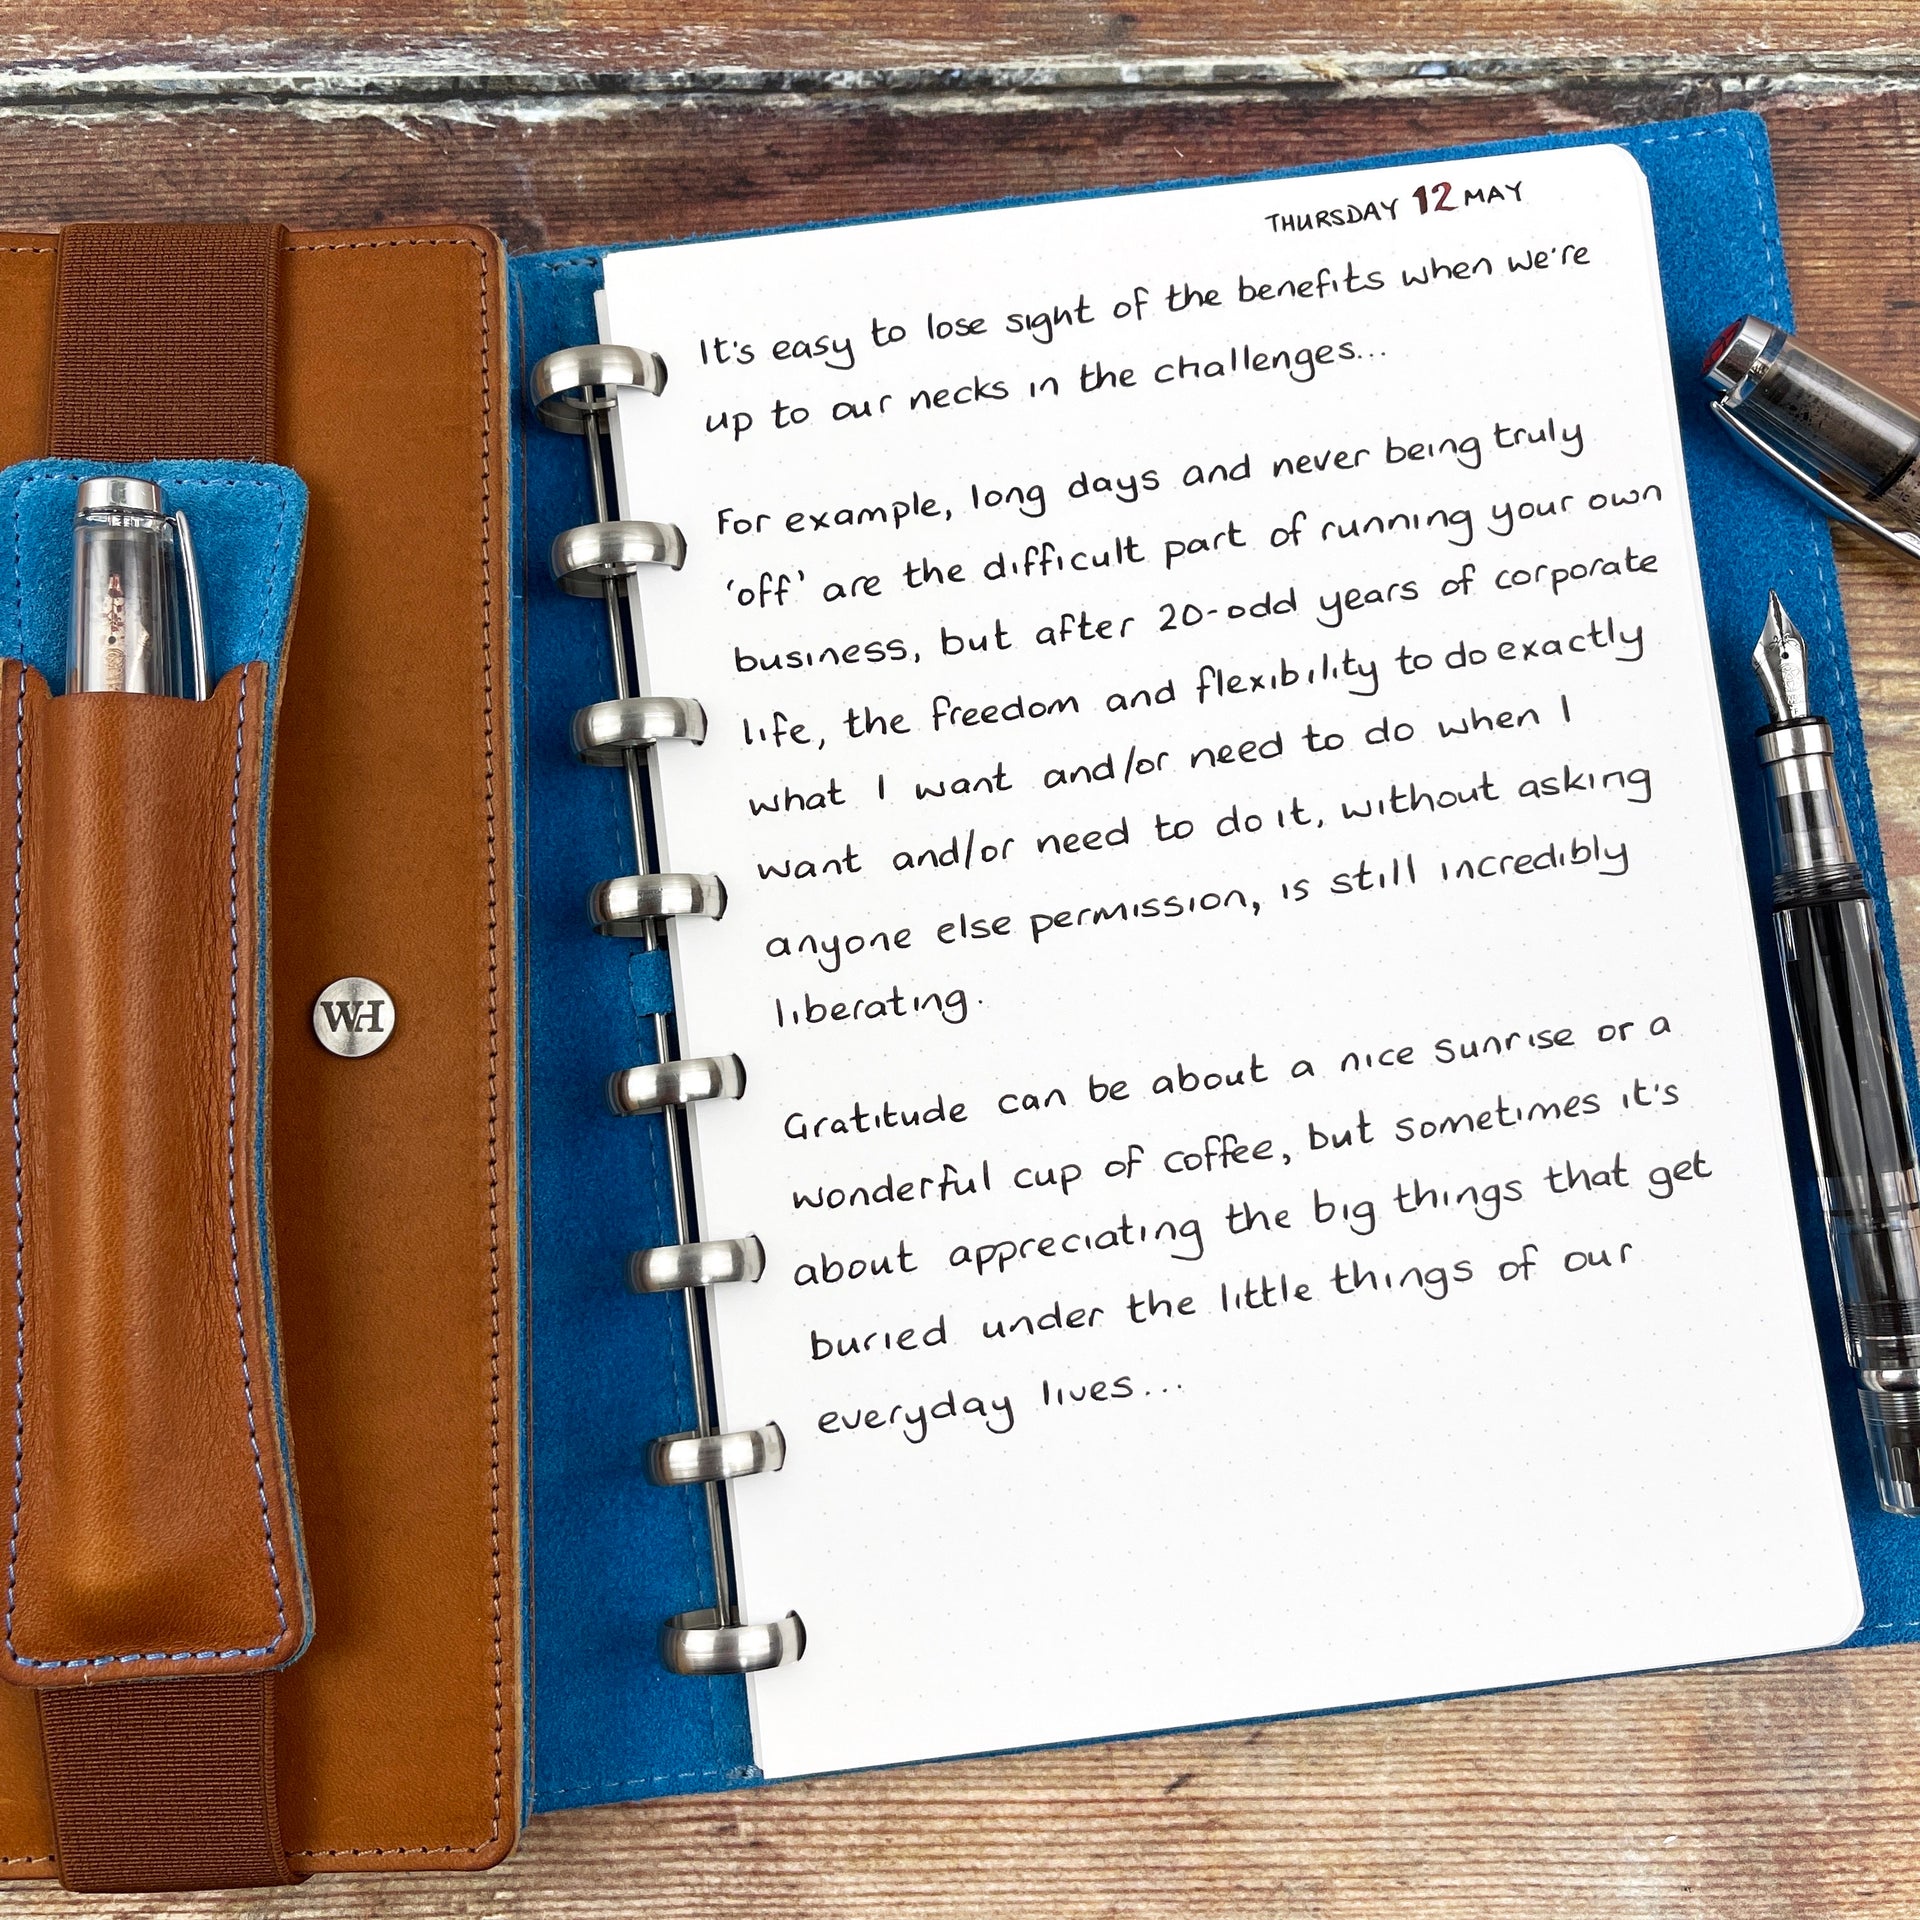 THURSDAY 12 MAY
It's easy to lose sight of the benefits when we're
up to our necks in the challenges...
For example, long days and never being truly
'off' are the difficult part of running your own
business, but after 20-odd years of corporate
life, the freedom and flexibility to do exactly
what I want and/or need to do when I
want and/or need to do it, without asking
anyone else permission, is still incredibly
liberating.
Gratitude can be about a nice sunrise or a
wonderful cup of coffee, but sometimes it's
about appreciating the big things that get
buried under the little things of our
everyday lives...
WH